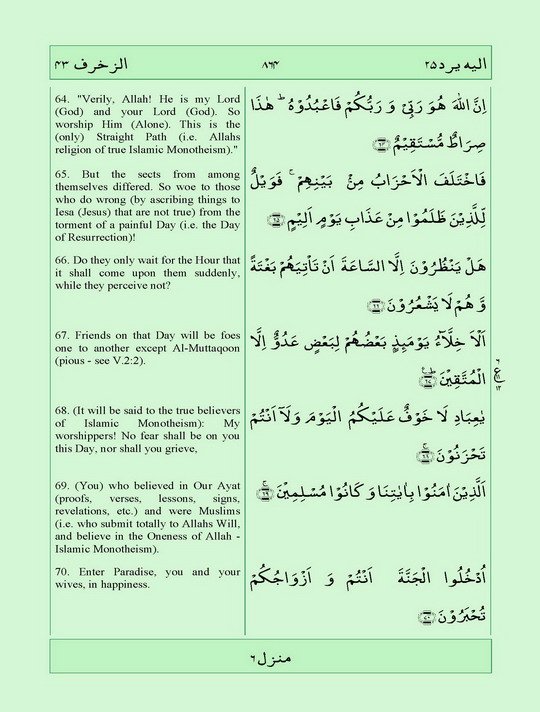 الزخرف ٤٣
٨٦٤
اليه يرد٢٥
64. "Verily, Allah! He is my Lord
(God) and your Lord (God). So
worship Him (Alone). This is the
(only) Straight Path (i.e. Allahs
religion of true Islamic Monotheism)."
اِنَّ اللّٰهَ هُوَ رَبِّىْ وَ رَبُّكُمْ فَاعْبُدُوْهُ ؕ هٰذَا
صِرَاطٌ مُّسْتَقِيْمٌ
65. But the sects from among
themselves differed. So woe to those
who do wrong (by ascribing things to
Iesa (Jesus) that are not true) from the
torment of a painful Day (i.e. the Day
of Resurrection)!
فَاخْتَلَفَ الْاَحْزَابُ مِنْۢ بَيْنِهِمْ ۚ فَوَيْلٌ
لِّلَّذِيْنَ ظَلَمُوْا مِنْ عَذَابِ يَوْمٍ اَلِيْمٍ
66. Do they only wait for the Hour that
it shall come upon them suddenly,
while they perceive not?
هَلْ يَنْظُرُوْنَ اِلَّا السَّاعَةَ اَنْ تَاْتِيَهُمْ بَغْتَةً
وَّ هُمْ لَا يَشْعُرُوْنَ
67. Friends on that Day will be foes
one to another except Al-Muttaqoon
(pious - see V.2:2).
اَلْاَ خِلَّآءُ يَوْمَىِٕذٍۭ بَعْضُهُمْ لِبَعْضٍ عَدُوٌّ اِلَّا
الْمُتَّقِيْنَ
68. (It will be said to the true believers
of Islamic Monotheism): My
worshippers! No fear shall be on you
this Day, nor shall you grieve,
يٰعِبَادِ لَا خَوْفٌ عَلَيْكُمُ الْيَوْمَ وَ لَاۤ اَنْتُمْ
تَحْزَنُوْنَ
69. (You) who believed in Our Ayat
(proofs, verses, lessons, signs,
revelations, etc.) and were Muslims
(i.e. who submit totally to Allahs Will,
and believe in the Oneness of Allah -
Islamic Monotheism).
اَلَّذِيْنَ اٰمَنُوْا بِاٰيٰتِنَا وَ كَانُوْا مُسْلِمِيْنَ
70. Enter Paradise, you and your
wives, in happiness.
اُدْخُلُوا الْجَنَّةَ اَنْتُمْ وَ اَزْوَاجُكُمْ
تُحْبَرُوْنَ
منزل٦